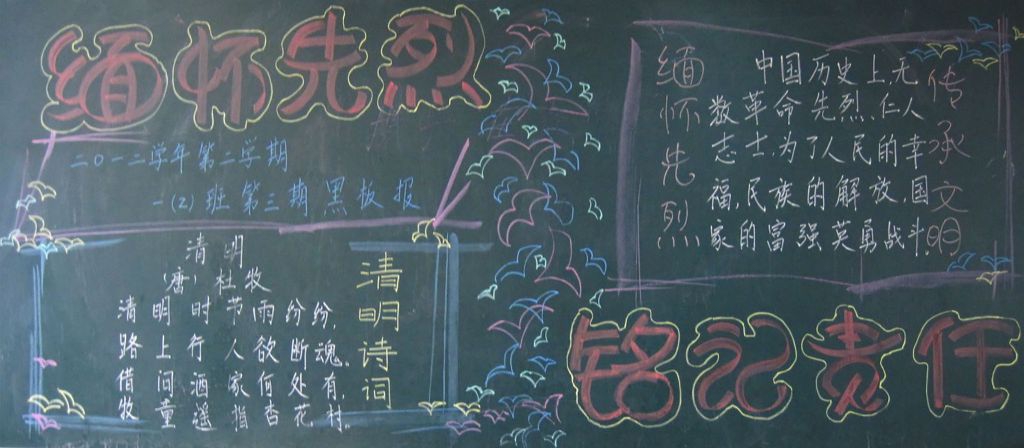 缅怀先烈
二0一二学年第二学期
一(2)班第三期黑板报
清明
(唐)杜牧
清明时节雨纷纷,
路上行人欲断魂。
借问酒家何处有,
牧童遥指杏花村.
清明诗词
缅怀先烈
中国历史上无
数革命先烈、仁人
志士,为了人民的幸
福,民族的解放,国
家的富强英勇战斗
传承文明
铭记责任